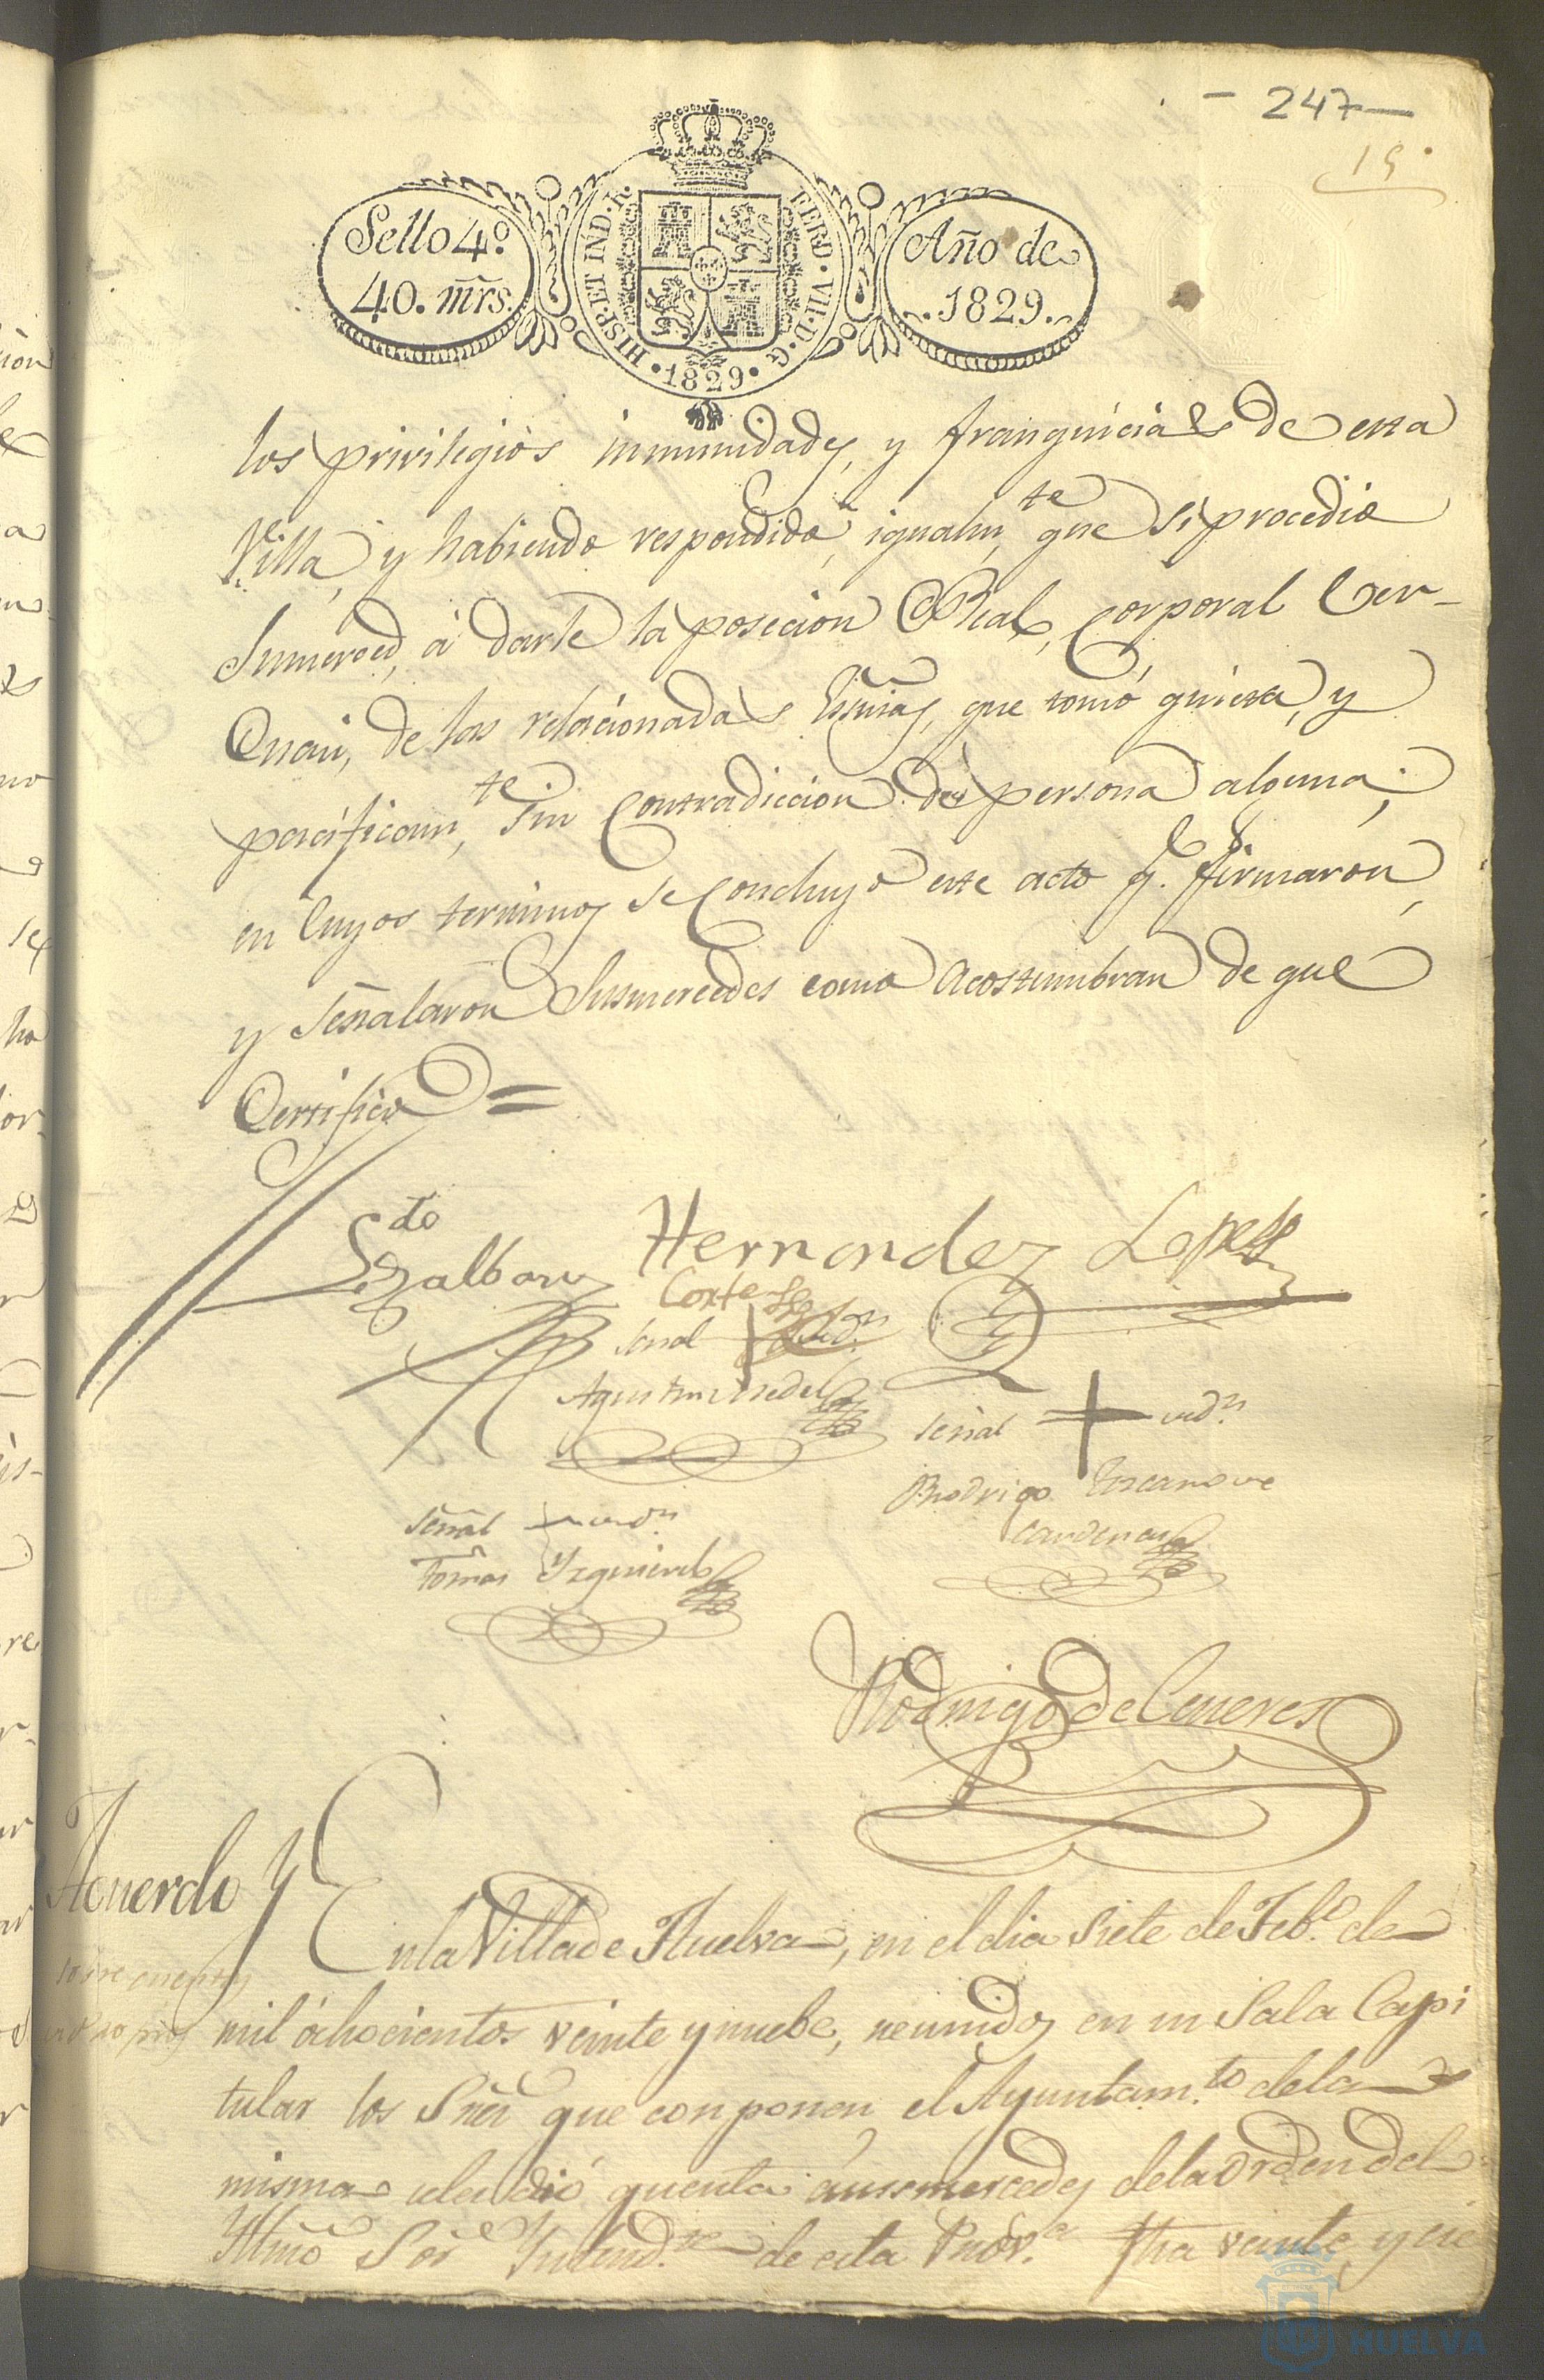 - 247 -
19.
Sello 4º.
40. mrs.
HISP. ET IND. R.
FERD. VII. D. G.
· 1829 ·
Año de
1829.
los privilegios inmunidades, y franquicias de esta
Villa, y habiendo respondido, igualmte que si procedió
Sumerced, á darle la posecion Real, Corporal Ver-
Quasi, de las relacionadas que tomó quieta, y
pacificamte. sin Contradiccion de persona alguna;
en Cuyos terminos se Concluyó este acto q. firmaron,
y señalaron Susmercedes como acostumbran de que
Certifico =
Hernandez Lopez
Cortes
señal + del Rdor.
Agustin
señal + del Rdor.
Rodrigo
Cardenas
señal + del Rdor.
Tomas Yzquierdo
Rodrigo de Ceneres
Acuerdo
En la Villa de Huelva, en el dia Siete de Febo. de
mil óchocientos veinte y nuebe, reunidos en su Sala Capi
tular los Sres que conponen el Ayuntamto. de la
misma se les dió quenta á susmercedes de la orden del
Yllmo Sor Yntendte de esta Prova. fha veinte, y
HUELVA